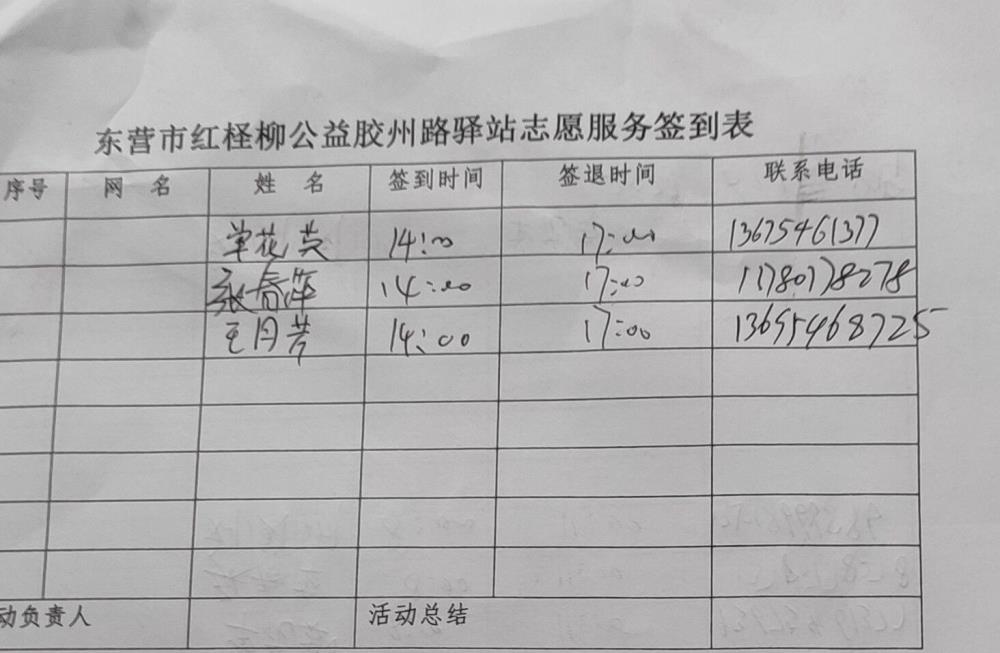 东营市红柽柳公益胶州路驿站志愿服务签到表
序号 网 名 姓 名 签到时间 签退时间 联系电话
单花英 14:00 17:00 13675461377
张春萍 14:00 17:00 11780178278
王月芳 14:00 17:00 13695468725
动负责人 活动总结